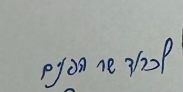 לכבוד שר הפנים